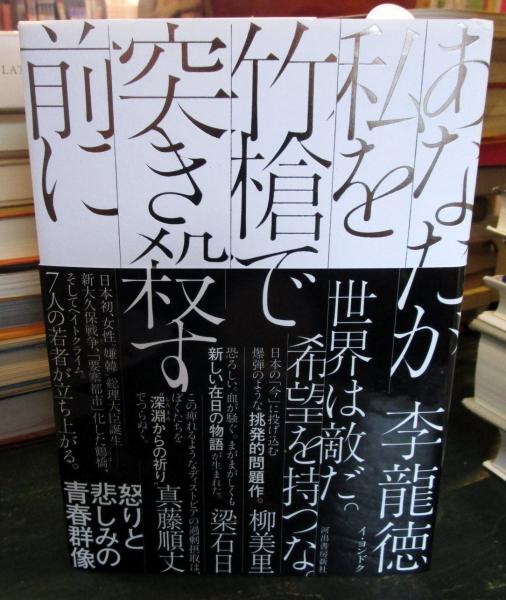 あなたが
私を
竹槍で
突き殺す
前に
李龍徳
イ・ヨンドク
河出書房新社
世界は敵だ。
希望を持つな。
日本の「今」に投げ込む
爆弾のような挑発的問題作。
柳美里
恐ろしい。血が騒ぐ。まがまがしくも
新しい在日の物語が生まれた。
梁石日
この痺れるようなディストピアの過剰摂取は、
ぼくたちを
深淵からの祈り。
でつらぬく。
真藤順丈
日本初、女性〈嫌韓〉総理大臣誕生
新大久保戦争、「要塞都市」化した鶴橋、
そしてヘイトクライム。
7人の若者が立ち上がる。
怒りと
悲しみの
青春群像
LAT